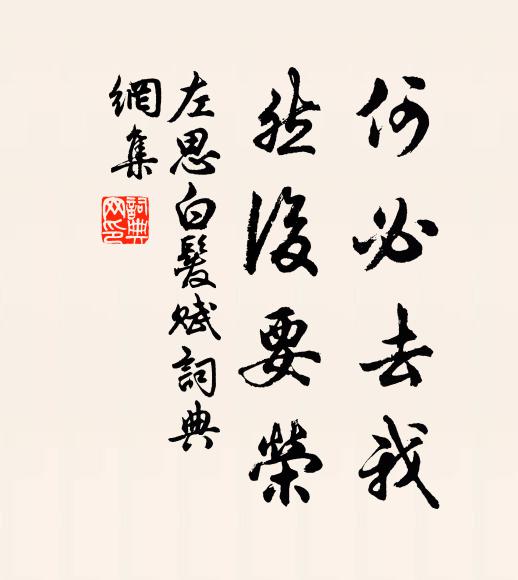 何必去我
然後要榮
左思白髮賦詞典
網集
詞典
网印